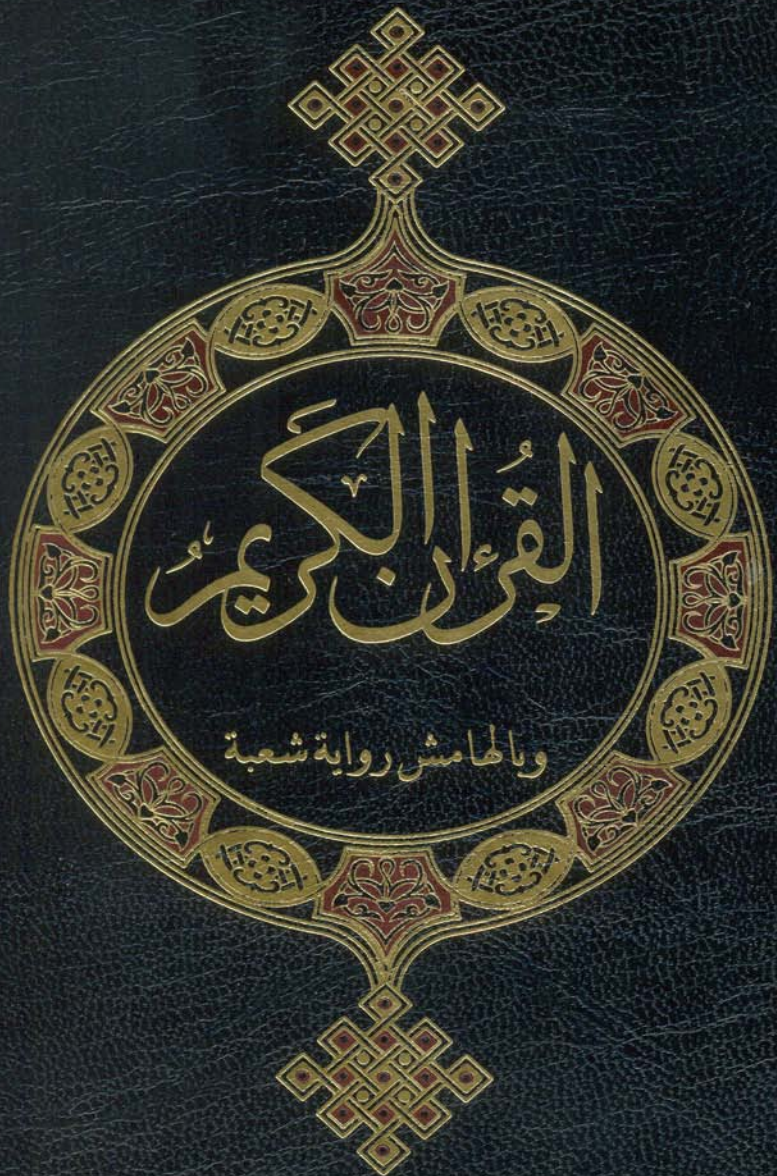 القُرْءَانُ الكَرِيمُ
وبالهامش رواية شعبة